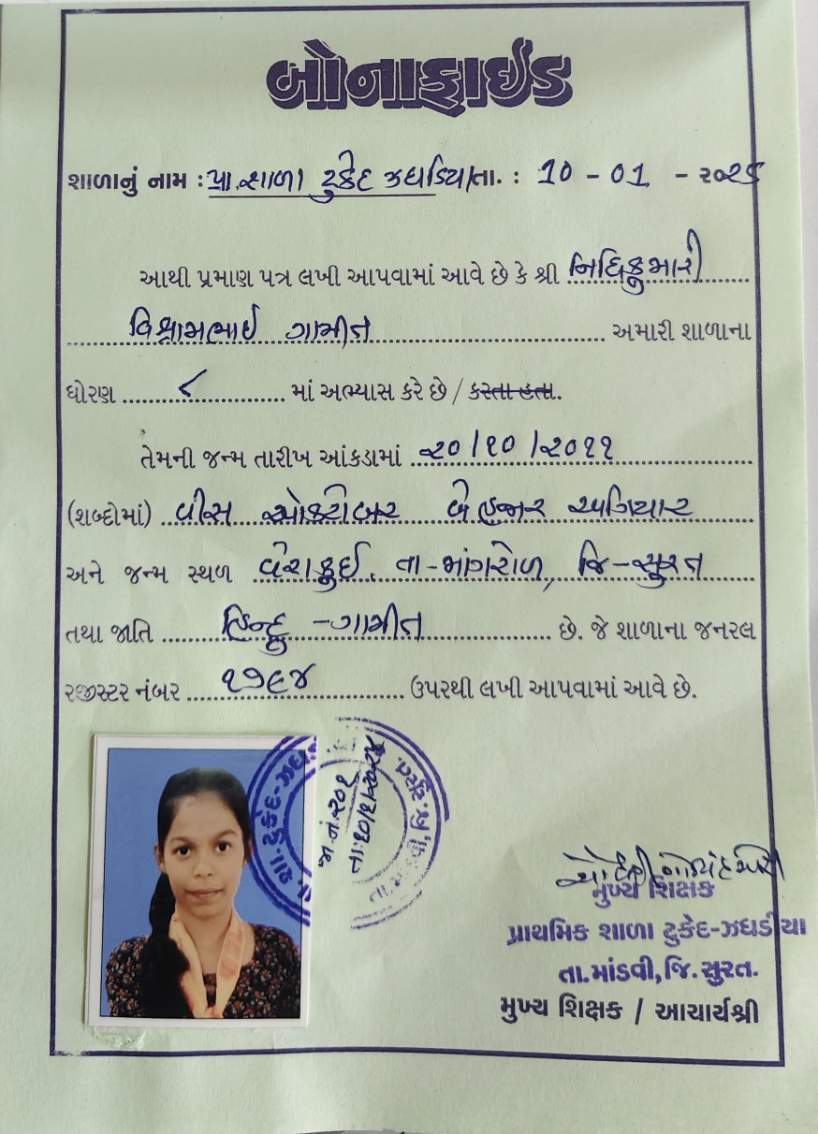 બોનાફાઈડ
શાળાનું નામ : પ્રા.શાળા ટુકેદ ઝઘડિયા તા. : 10 - 01 - ૨૦૨૬
આથી પ્રમાણ પત્ર લખી આપવામાં આવે છે કે શ્રી નિધિકુમારી
વિશ્રામભાઈ ગામીત અમારી શાળાના
ધોરણ ૮ માં અભ્યાસ કરે છે / કરતા હતા.
તેમની જન્મ તારીખ આંકડામાં ૨૦/૧૦/૨૦૧૧
(શબ્દોમાં) વીસ ઓક્ટોબર બે હજાર અગિયાર
અને જન્મ સ્થળ વેરાકુઈ, તા-માંગરોળ, જિ-સુરત
તથા જાતિ હિન્દુ - ગામીત છે. જે શાળાના જનરલ
રજીસ્ટર નંબર ૧૭૯૪ ઉપરથી લખી આપવામાં આવે છે.
મુખ્ય શિક્ષક
પ્રાથમિક શાળા ટુકેદ-ઝઘડીયા
તા.માંડવી, જિ. સુરત.
મુખ્ય શિક્ષક / આચાર્યશ્રી